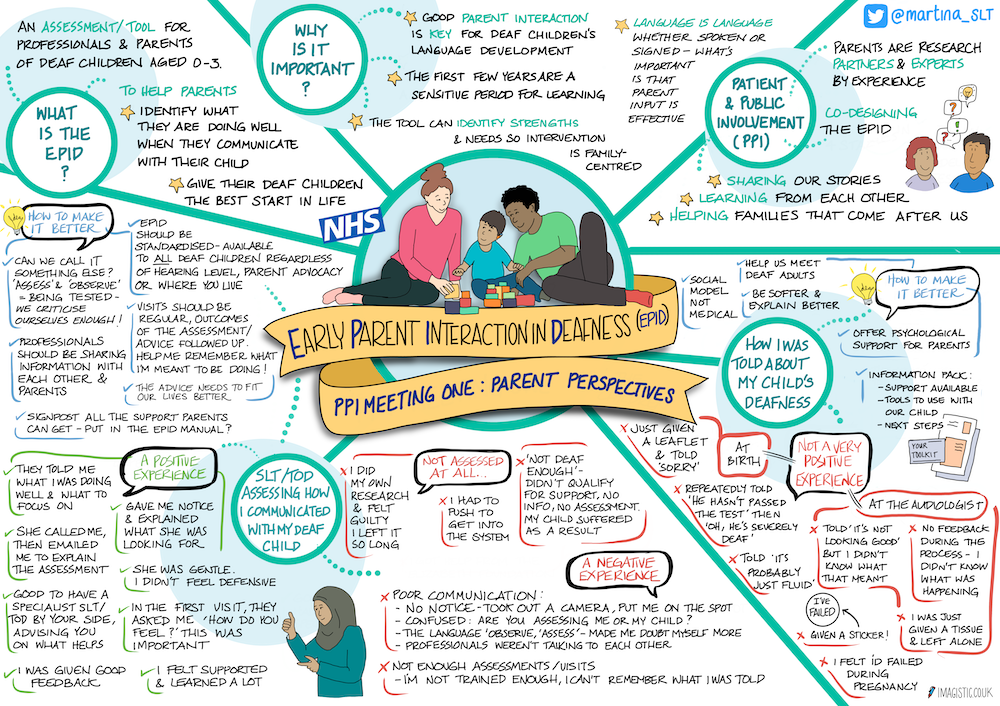 AN ASSESSMENT/TOOL FOR
PROFESSIONALS & PARENTS
OF DEAF CHILDREN AGED 0-3.
WHAT
IS THE
EPID
?
TO HELP PARENTS
IDENTIFY WHAT
THEY ARE DOING WELL
WHEN THEY COMMUNICATE
WITH THEIR CHILD
GIVE THEIR DEAF CHILDREN
THE BEST START IN LIFE
WHY
IS IT
IMPORTANT
?
GOOD PARENT INTERACTION
IS KEY FOR DEAF CHILDREN'S
LANGUAGE DEVELOPMENT
THE FIRST FEW YEARS ARE A
SENSITIVE PERIOD FOR LEARNING
THE TOOL CAN IDENTIFY STRENGTHS
& NEEDS SO INTERVENTION
IS FAMILY-
CENTRED
LANGUAGE IS LANGUAGE
WHETHER SPOKEN OR
SIGNED - WHAT'S
IMPORTANT
IS THAT
PARENT
INPUT IS
EFFECTIVE
@martina_SLT
PATIENT
& PUBLIC
INVOLVEMENT
(PPI)
PARENTS ARE RESEARCH
PARTNERS & EXPERTS
BY EXPERIENCE
CO-DESIGNING
THE EPID
?
?
!
?
SHARING OUR STORIES
LEARNING FROM EACH OTHER
HELPING FAMILIES THAT COME AFTER US
NHS
EARLY PARENT INTERACTION IN DEAFNESS (EPID)
PPI MEETING ONE: PARENT PERSPECTIVES
HOW TO MAKE
IT BETTER
CAN WE CALL IT
SOMETHING ELSE?
'ASSESS' & 'OBSERVE'
= BEING TESTED -
WE CRITICISE
OURSELVES ENOUGH!
PROFESSIONALS
SHOULD BE SHARING
INFORMATION WITH
EACH OTHER &
PARENTS
SIGNPOST ALL THE SUPPORT PARENTS
CAN GET - PUT IN THE EPID MANUAL?
EPID
SHOULD BE
STANDARDISED - AVAILABLE
TO ALL DEAF CHILDREN REGARDLESS
OF HEARING LEVEL, PARENT ADVOCACY
OR WHERE YOU LIVE
VISITS SHOULD BE
REGULAR, OUTCOMES
OF THE ASSESSMENT/
ADVICE FOLLOWED UP.
HELP ME REMEMBER WHAT
I'M MEANT TO BE DOING!
THE ADVICE NEEDS TO FIT
OUR LIVES BETTER
SLT/TOD
ASSESSING HOW
I COMMUNICATED
WITH MY DEAF
CHILD
A POSITIVE
EXPERIENCE
THEY TOLD ME
WHAT I WAS DOING
WELL & WHAT TO
FOCUS ON
SHE CALLED ME,
THEN EMAILED
ME TO EXPLAIN
THE ASSESSMENT
GOOD TO HAVE A
SPECIALIST SLT/
TOD BY YOUR SIDE,
ADVISING YOU
ON WHAT HELPS
I WAS GIVEN GOOD
FEEDBACK
GAVE ME NOTICE
& EXPLAINED
WHAT SHE WAS
LOOKING FOR
SHE WAS GENTLE.
I DIDN'T FEEL DEFENSIVE
IN THE FIRST VISIT, THEY
ASKED ME 'HOW DO YOU
FEEL?' THIS WAS
IMPORTANT
I FELT SUPPORTED
& LEARNED A LOT
NOT ASSESSED
AT ALL...
I DID
MY OWN
RESEARCH
& FELT
GUILTY
I LEFT IT
SO LONG
I HAD TO
PUSH TO
GET INTO
THE SYSTEM
'NOT DEAF
ENOUGH' -
DIDN'T QUALIFY
FOR SUPPORT, NO
INFO, NO ASSESSMENT.
MY CHILD SUFFERED
AS A RESULT
A NEGATIVE
EXPERIENCE
POOR COMMUNICATION:
- NO NOTICE - TOOK OUT A CAMERA, PUT ME ON THE SPOT
- CONFUSED: ARE YOU ASSESSING ME OR MY CHILD?
- THE LANGUAGE 'OBSERVE, 'ASSESS' - MADE ME DOUBT MYSELF MORE
- PROFESSIONALS WEREN'T TALKING TO EACH OTHER
NOT ENOUGH ASSESSMENTS/VISITS
- I'M NOT TRAINED ENOUGH, I CAN'T REMEMBER WHAT I WAS TOLD
HOW I WAS
TOLD ABOUT
MY CHILD'S
DEAFNESS
SOCIAL
MODEL
NOT
MEDICAL
HELP US MEET
DEAF ADULTS
BE SOFTER &
EXPLAIN BETTER
HOW TO MAKE
IT BETTER
OFFER PSYCHOLOGICAL
SUPPORT FOR PARENTS
INFORMATION PACK:
- SUPPORT AVAILABLE
- TOOLS TO USE WITH
OUR CHILD
- NEXT STEPS
YOUR
TOOLKIT
NOT A VERY
POSITIVE
EXPERIENCE
AT
BIRTH
JUST GIVEN
A LEAFLET
& TOLD
'SORRY'
REPEATEDLY TOLD
'HE HASN'T PASSED
THE TEST' THEN
'OH, HE'S SEVERELY
DEAF'
TOLD 'IT'S
PROBABLY
JUST FLUID'
AT THE AUDIOLOGIST
TOLD 'IT'S NOT
LOOKING GOOD'
BUT I DIDN'T
KNOW WHAT
THAT MEANT
NO FEEDBACK
DURING THE
PROCESS - I
DIDN'T KNOW
WHAT WAS
HAPPENING
I'VE
FAILED
GIVEN A STICKER!
I WAS JUST
GIVEN A TISSUE
& LEFT ALONE
I FELT I'D FAILED
DURING
PREGNANCY
IMAGISTIC.CO.UK